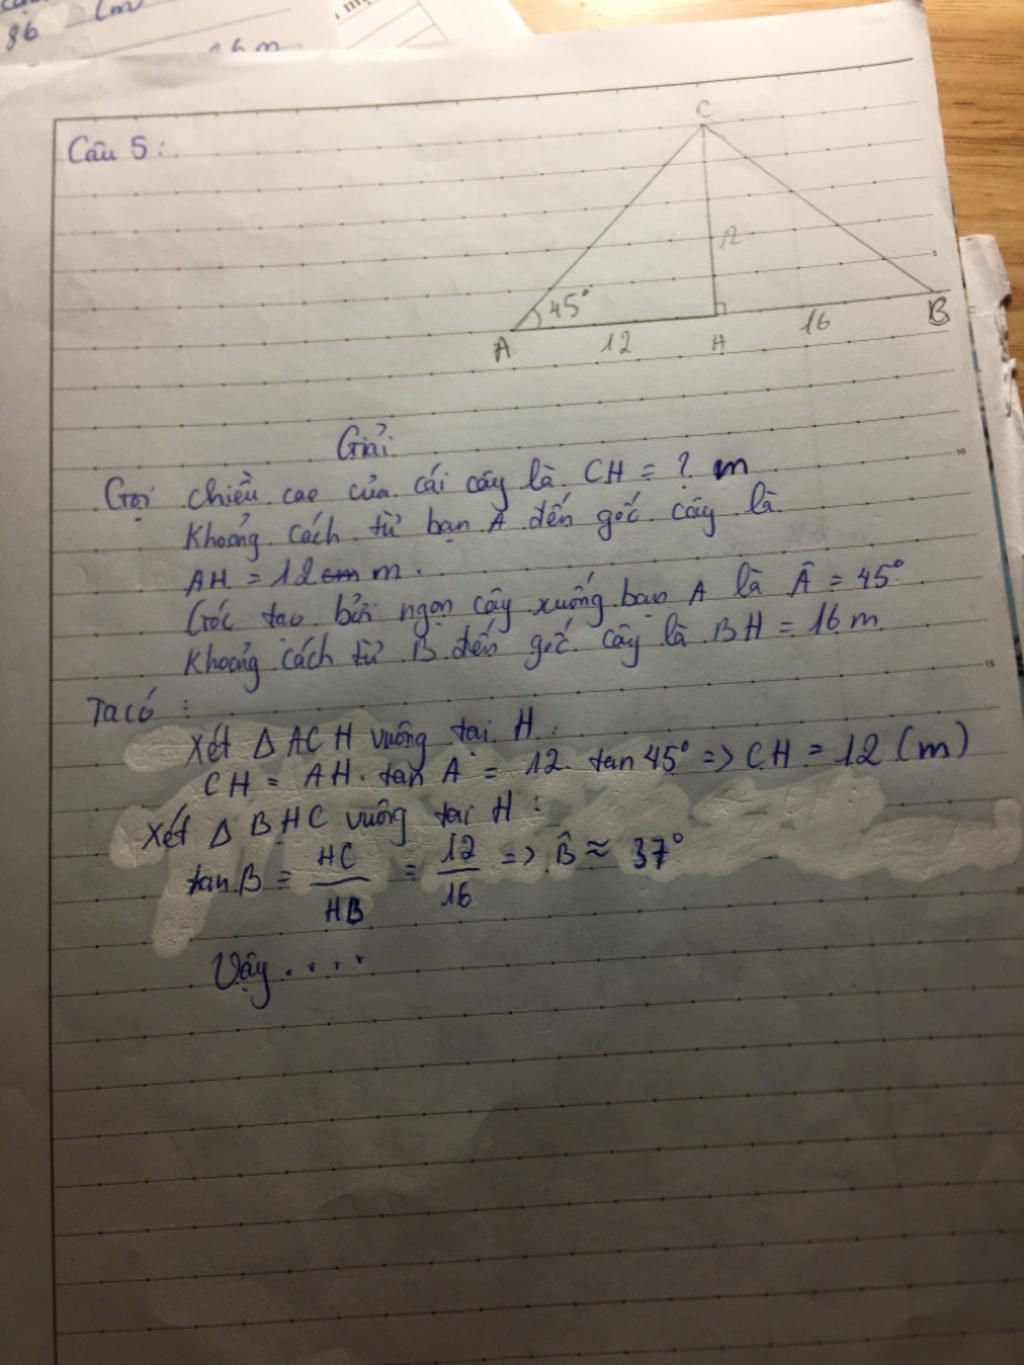 86
(m
16 m
Câu 5:
C
12
45°
A
12
H
16
B
Giải
Gọi chiều cao của cái cây là CH = ? m
Khoảng cách từ bạn A đến gốc cây là
AH = 12 cm m.
Góc tạo bởi ngọn cây xuống bạn A là Â = 45°
Khoảng cách từ B đến gốc cây là BH = 16 m
Ta có :
Xét Δ ACH vuông tại H :
CH = AH. tan A = 12. tan 45° => CH = 12 (m)
Xét Δ BHC vuông tại H :
tan B = HC/HB = 12/16 => B̂ ≈ 37°
Vậy ....